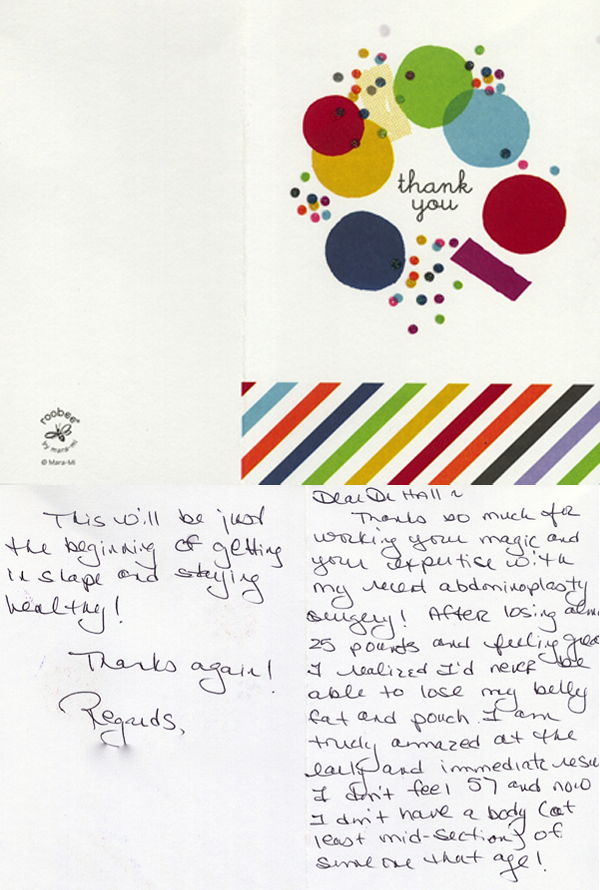 thank
you
roobee®
by mara-mi
© Mara-Mi
Dear Dr Hall ~
Thanks so much for
working your magic and
your expertise with
my recent abdominoplasty
surgery! After losing almo
25 pounds and feeling grea
I realized I'd never be
able to lose my belly
fat and pouch. I am
truly amazed at the
early and immediate resu
I don't feel 57 and now
I don't have a body (at
least mid-section) of
someone that age!
This will be just
the beginning of getting
in shape and staying
healthy!
Thanks again!
Regards,